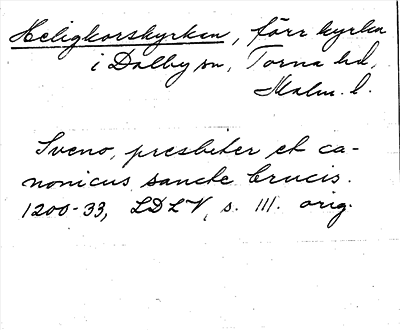 Heligkorskyrkan, förr kyrka
i Dalby sn, Torna hd,
Malm. l.
Sveno, presbiter et ca-
nonicus sancte Crucis.
1200-33, LDLV, s. 111. orig.